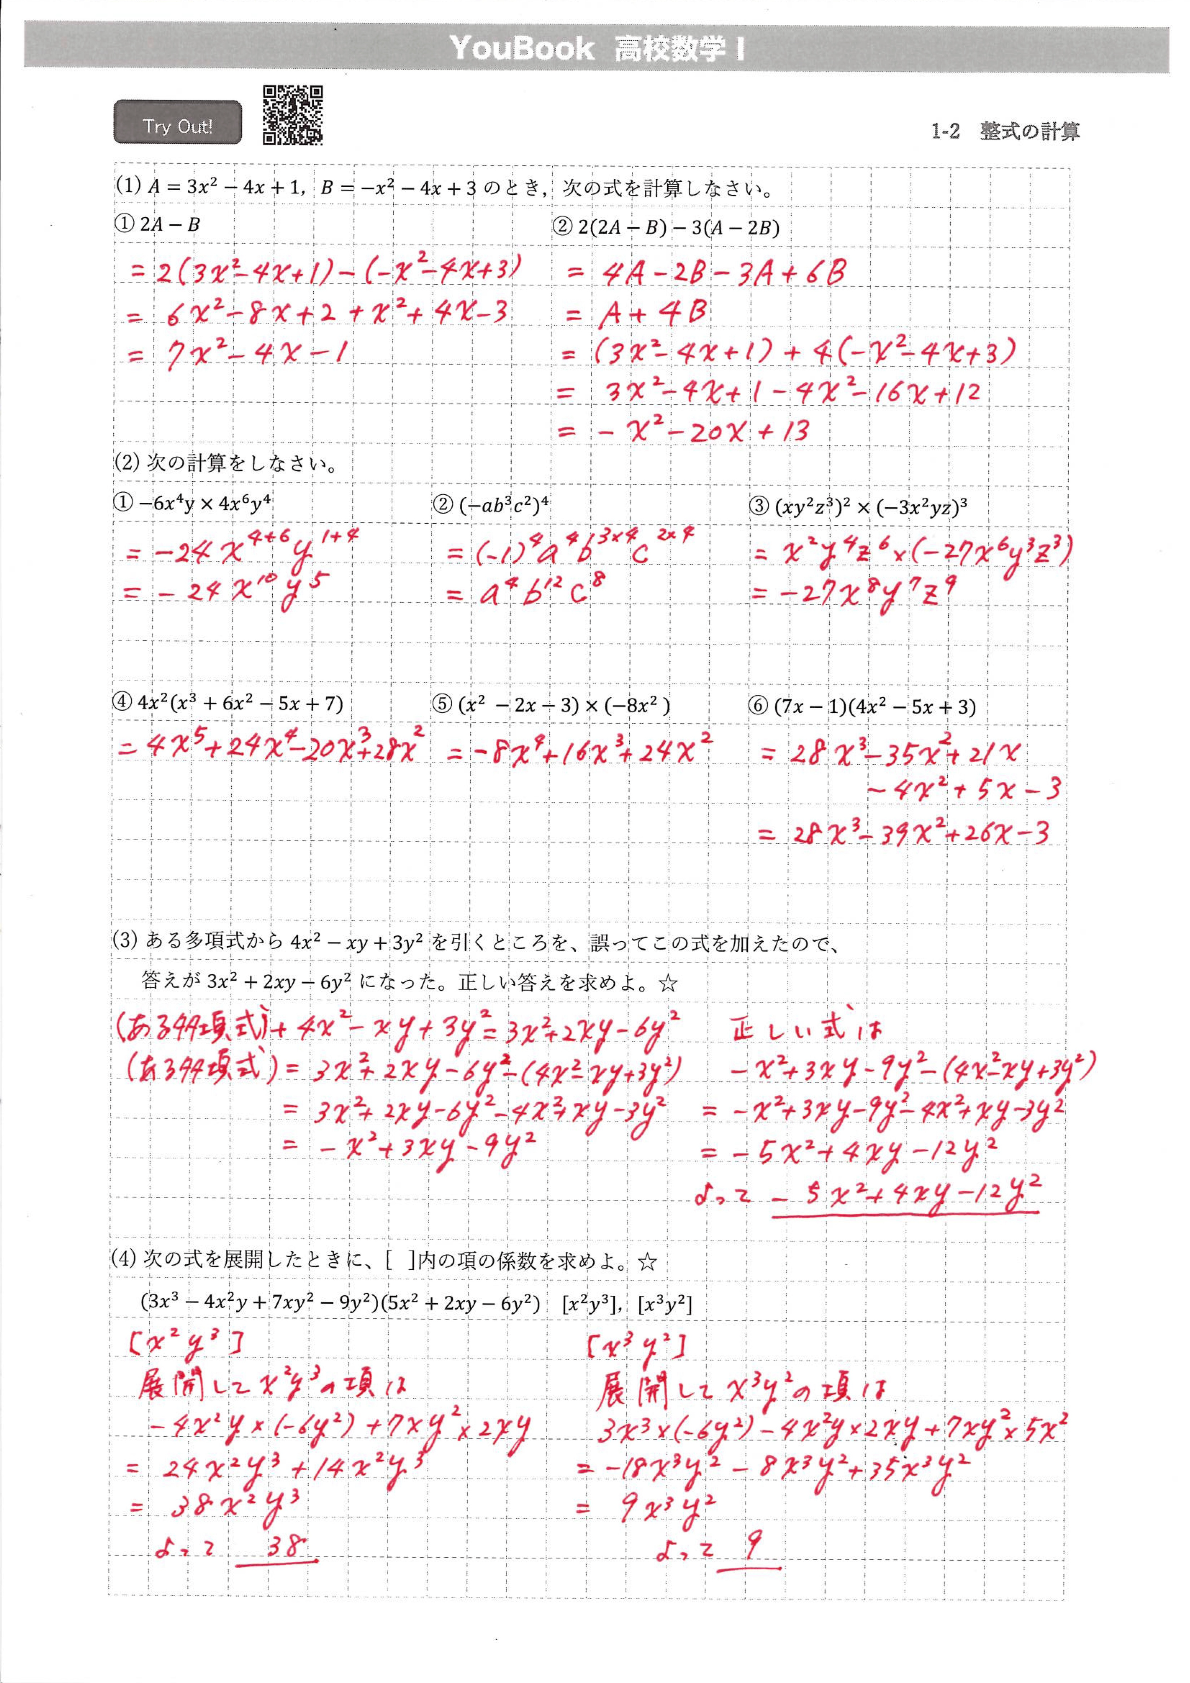 YouBook 高校数学 I
Try Out!
1-2 整式の計算
(1) A = 3x² − 4x + 1, B = −x² − 4x + 3 のとき, 次の式を計算しなさい。
① 2A − B
② 2(2A − B) − 3(A − 2B)
= 2(3x²−4x+1)−(−x²−4x+3)
= 6x²−8x+2+x²+4x−3
= 7x²−4x−1
= 4A−2B−3A+6B
= A+4B
= (3x²−4x+1)+4(−x²−4x+3)
= 3x²−4x+1−4x²−16x+12
= −x²−20x+13
(2) 次の計算をしなさい。
① −6x⁴y × 4x⁶y⁴
= −24x⁴⁺⁶y¹⁺⁴
= −24x¹⁰y⁵
② (−ab³c²)⁴
= (−1)⁴a⁴b³ˣ⁴c²ˣ⁴
= a⁴b¹²c⁸
③ (xy²z³)² × (−3x²yz)³
= x²y⁴z⁶×(−27x⁶y³z³)
= −27x⁸y⁷z⁹
④ 4x²(x³ + 6x² − 5x + 7)
= 4x⁵+24x⁴−20x³+28x²
⑤ (x² − 2x − 3) × (−8x²)
= −8x⁴+16x³+24x²
⑥ (7x − 1)(4x² − 5x + 3)
= 28x³−35x²+21x
−4x²+5x−3
= 28x³−39x²+26x−3
(3) ある多項式から 4x² − xy + 3y² を引くところを、誤ってこの式を加えたので、
答えが 3x² + 2xy − 6y² になった。正しい答えを求めよ。☆
(ある多項式)+4x²−xy+3y²=3x²+2xy−6y²
(ある多項式)=3x²+2xy−6y²−(4x²−xy+3y²)
= 3x²+2xy−6y²−4x²+xy−3y²
= −x²+3xy−9y²
正しい式は
−x²+3xy−9y²−(4x²−xy+3y²)
= −x²+3xy−9y²−4x²+xy−3y²
= −5x²+4xy−12y²
よって −5x²+4xy−12y²
(4) 次の式を展開したときに、[ ]内の項の係数を求めよ。☆
(3x³ − 4x²y + 7xy² − 9y²)(5x² + 2xy − 6y²) [x²y³], [x³y²]
[x²y³]
展開して x²y³の項は
−4x²y×(−6y²)+7xy²×2xy
= 24x²y³+14x²y³
= 38x²y³
よって 38
[x³y²]
展開して x³y²の項は
3x³×(−6y²)−4x²y×2xy+7xy²×5x²
= −18x³y²−8x³y²+35x³y²
= 9x³y²
よって 9